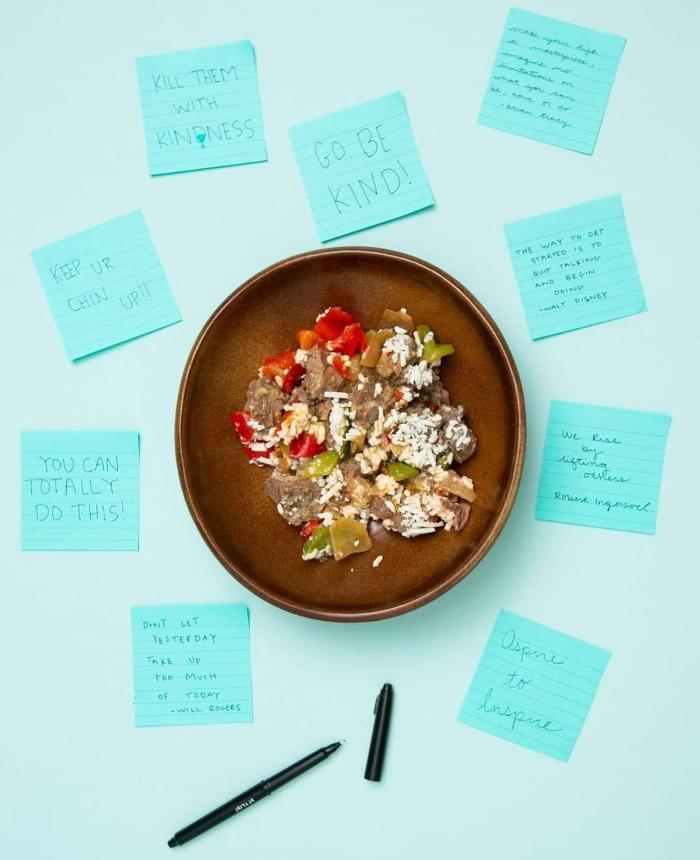 KILL THEM
WITH
KINDNESS
GO BE
KIND!
make your life
a masterpiece;
imagine no
limitations on
what you can
be, have or do
-brian tracy
KEEP UR
CHIN UP!!
THE WAY TO GET
STARTED IS TO
QUIT TALKING
AND BEGIN
DOING
-WALT DISNEY
YOU CAN
TOTALLY
DO THIS!
We Rise
by
lifting
others
Robert Ingersoll
DONT LET
YESTERDAY
TAKE UP
TOO MUCH
OF TODAY
-WILL ROGERS
Aspire
to
Inspire